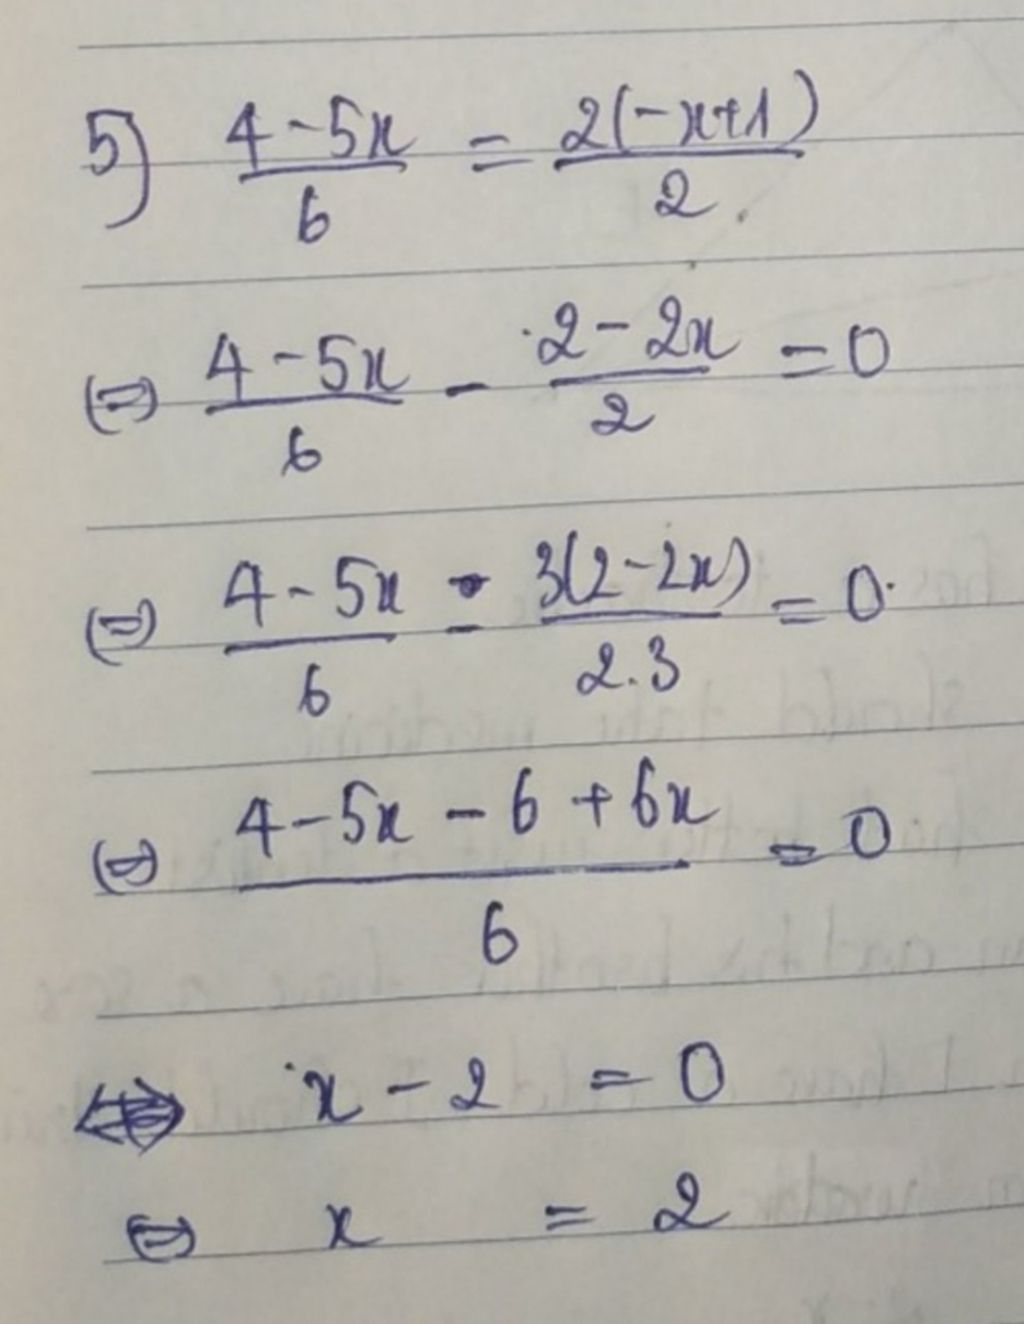 5) \frac{4-5x}{6} = \frac{2(-x+1)}{2}.
⇔ \frac{4-5x}{6} - \frac{2-2x}{2} = 0
⇔ \frac{4-5x}{6} - \frac{3(2-2x)}{2.3} = 0
⇔ \frac{4-5x-6+6x}{6} = 0
⇔ x-2 = 0
⇔ x = 2